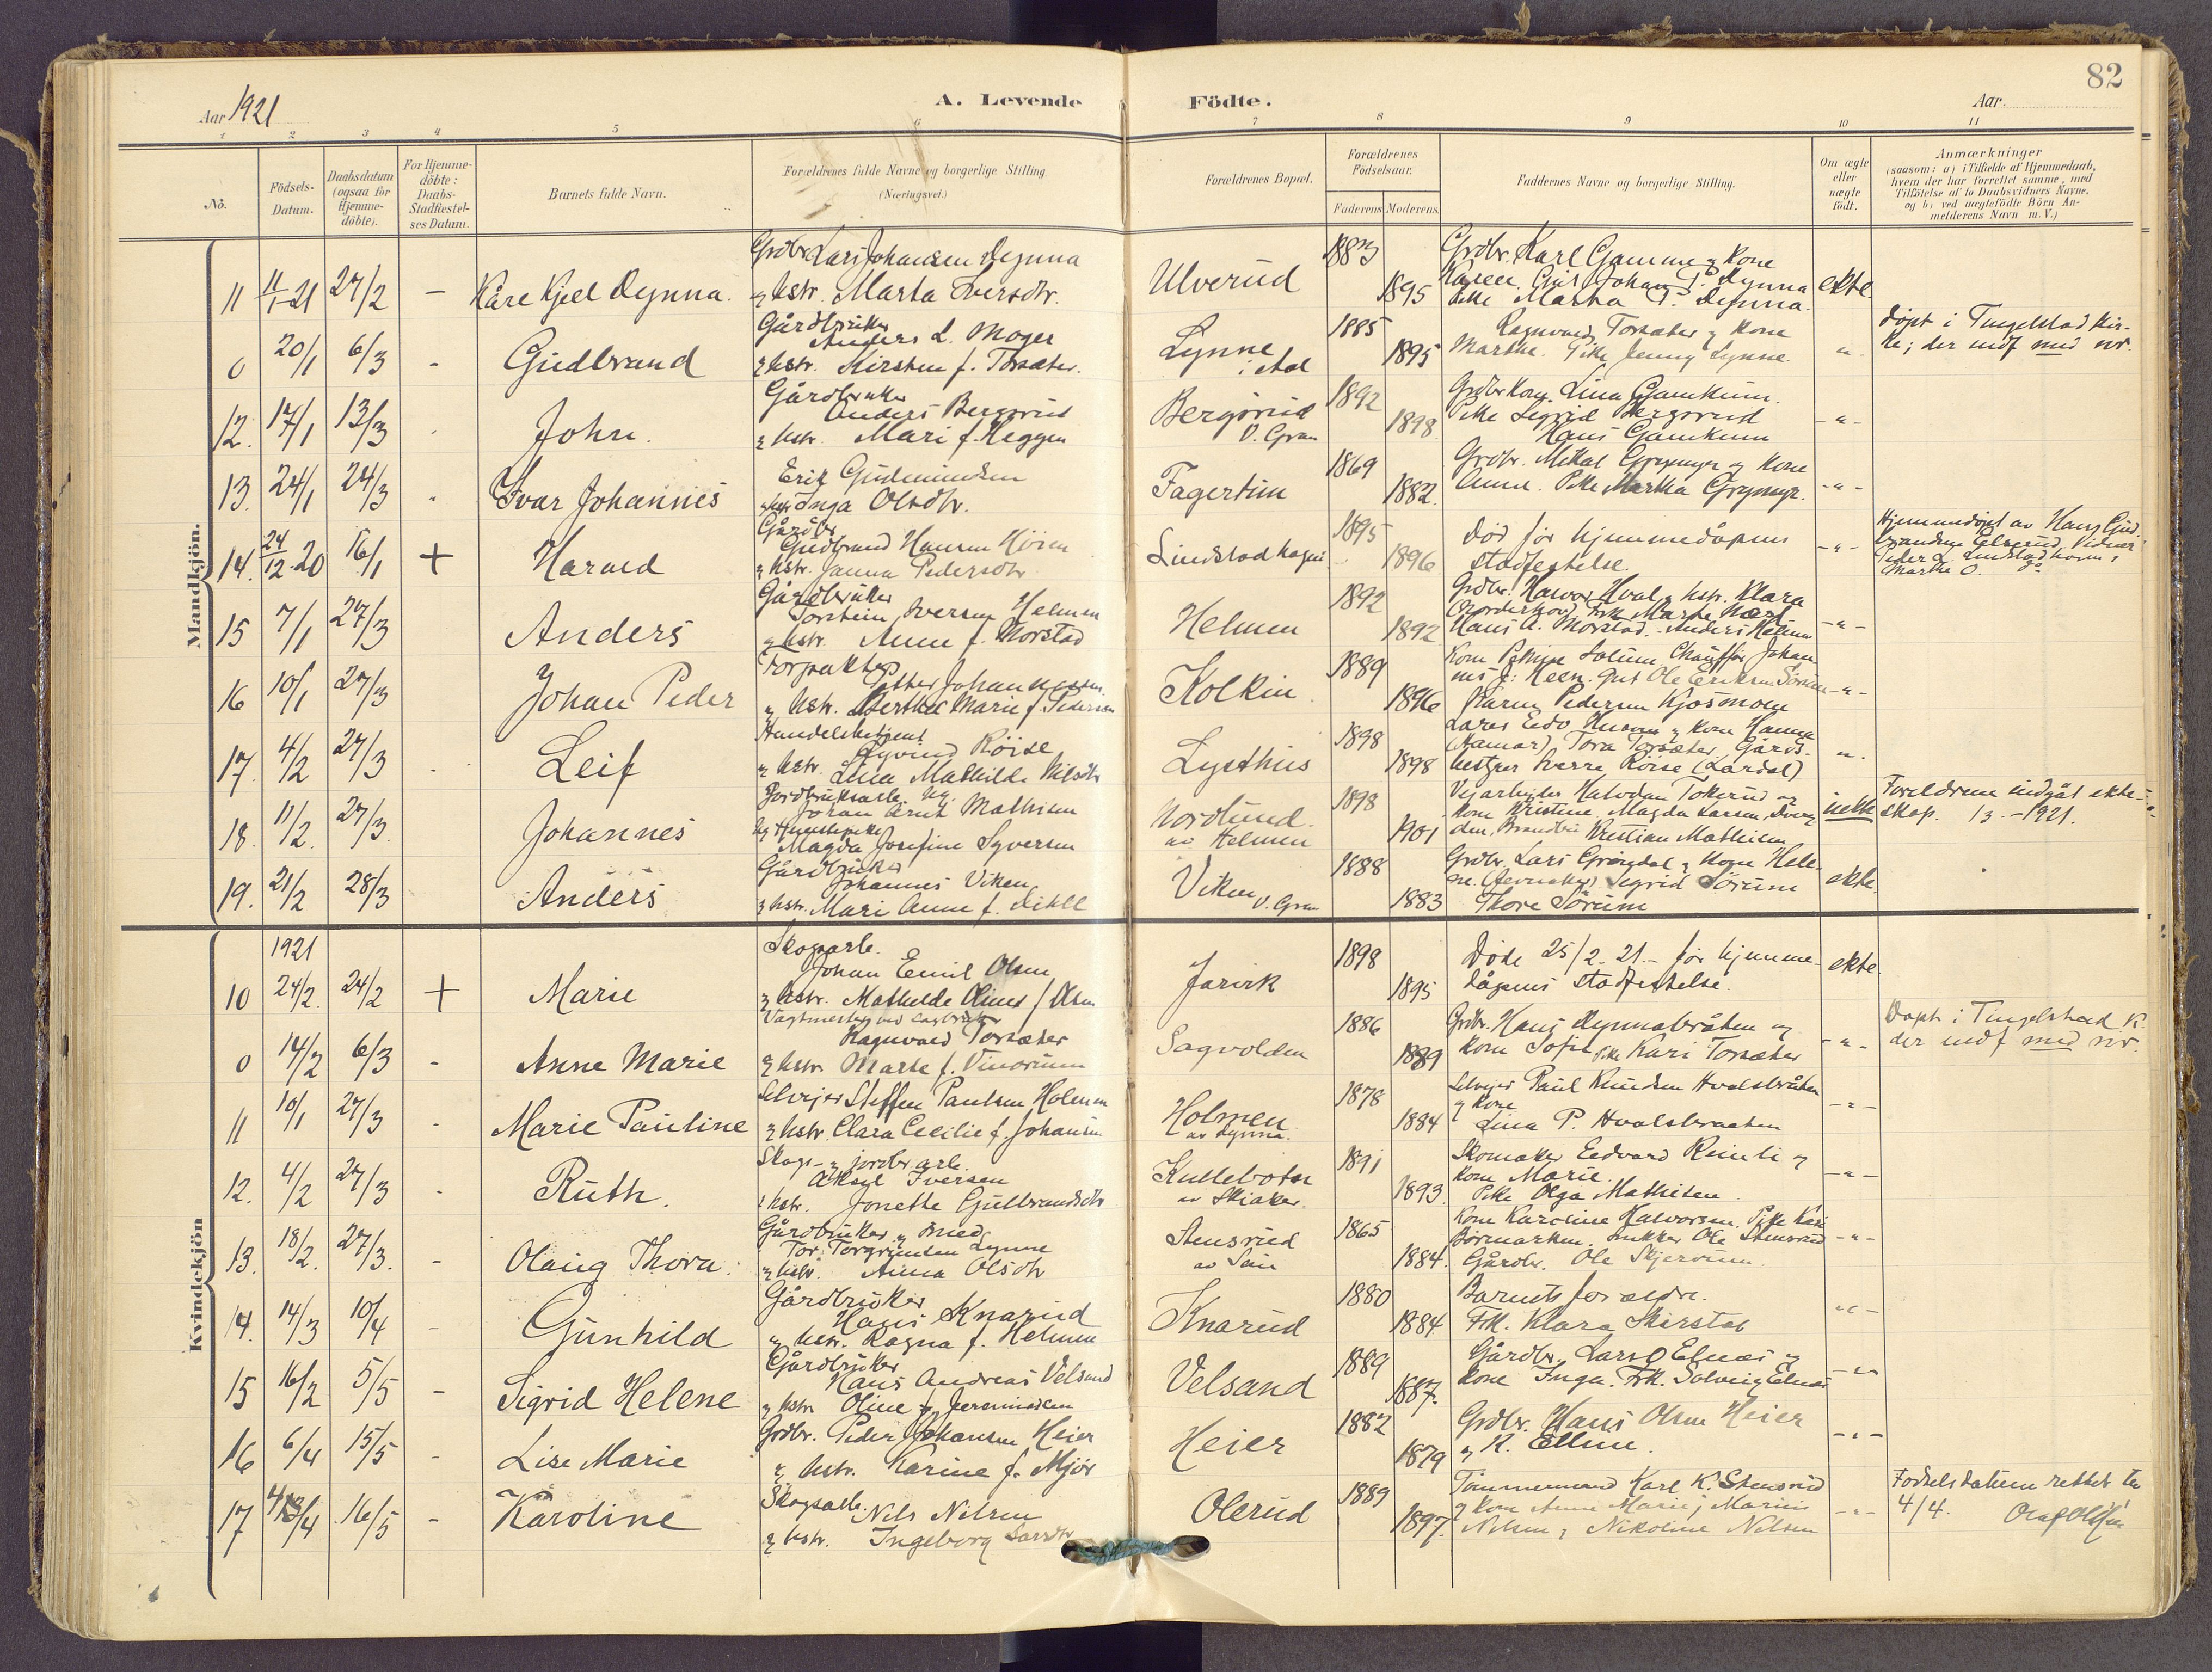 82
Aar 1921
A. Levende Födte.
Aar.
1 2 3 4 5 6 7 8 9 10 11
No.
Födsels-Datum.
Daabsdatum (ogsaa for Hjemme-döbte).
For Hjemme-döbte: Daabs-Stadfæstel-ses Datum.
Barnets fulde Navn.
Forældrenes fulde Navne og borgerlige Stilling (Næringsvei.)
Forældrenes Bopæl.
Forældrenes Födselsaar.
Faderens Moderens.
Faddernes Navne og borgerlige Stilling.
Om ægte eller uægte födt.
Anmærkninger
(saasom: a) i Tilfælde af Hjemmedaab,
hvem der har forrettet samme, med
Tilföielse af to Daabsvidners Navne.
og b) ved uægtefödte Börn An-
melderens Navn m. V.)
Mandkjön.
11 11/1-21 27/2 - Kåre Kjell Dynna.
Grdbr. Lars Johansen Dynna
og hstr. Marta Iversdtr.
Ulverud 1883 1895
Grdbr. Karl Gamme og kone
Karen. Johan P. Dynna
Pike Martha P. Dynna.
ekte
0 20/1 6/3 - Gudbrand
Gårdbruker
Anders L. Moger
og hstr. Kirsten f. Torsæter.
Lynne
1885 1895
Ragnvald Torsæter og kone
Marthe. Pike Jenny Lynne.
-"-
døpt i Tingelstad kir-
ke; der indf med nr.
12. 17/1 13/3 John.
Gårdbruker
Anders Bergsrud
og hstr. Mari f. Heggen
Bergsrud
V. Gran
1892 1898
Grdbr.kone Lina Gamkinn.
Pike Sigrid Bergsrud
Hans Gamkinn
-"-
13. 24/1 24/3 Ivar Johannes
Erik Gudmundsen
hstr. Inga Olsdtr.
Fagertun
1869 1882.
Grdbr. Mikal Grymyr og kone
Anne. Pike Martha Grymyr.
-"-
14. 24/12-20 16/1 + Harald
Gårdbr.
Gudbrand Hansen
og hstr. Janna Pedersdtr.
Lindstadhagen
1895 1896
Død før hjemmedåpens
stadfestelse.
-"-
Hjemmedøpt av Hans Gud-
brandsen
Peder L. Lindstad
Marthe O. do
15 7/1 27/3 Anders
Gårdbruker
Torstein Iversen Helmen
og hstr. Anne f. Morstad
Helmen
1892 1892
Grdbr. Halvor Hval og hstr. Klara
Frk. Marthe
Hans A. Morstad. Anders Helmen
-"-
16 10/1 27/3 Johan Peder
Forpakter
Petter Johannessen
og hstr. Berthe Marie f. Pedersen
Kolkin
1889 1896
Kone Solum. Chauffør Johan-
nes J. Gut Ole Eriksen Sørum
Karen Pedersen Kjosmoen
-"-
17. 4/2 27/3 Leif
Handelsbetjent
Eyvind Röise
og hstr. Lina Mathilde Nilsdtr
Lysthus
1898 1898
og kone Hanna
(Hamar) Tora Torsæter, Gårds-
bestyrer Sverre Röise (Lardal)
-"-
18. 11/2. 27/3. Johannes
Jordbruksarb. ug.
Johan Erik Mathisen
Magda Josefine Syversen
Nordlund
av Helmen
1898 1901
Vejarbejder Halvdan Tokerud og
kone Kristine. Magda Larsen,
Kristian Mathisen
uekte
Foreldrene indgåt ekte-
skap. 13. -1921.
19. 21/2 28/3 Anders
Gårdbruker
Johannes Viken
og hstr. Mari Anne f.
Viken V. Gran
1888 1883
Grdbr. Lars Gröndal og kone Hele-
ne. (Jevnaker) Sigrid Sörum
Thore Sörum
ekte.
Kvindekjön
1921
10 24/2. 24/2 + Marie
Skogsarb.
Johan Emil Olsen
og hstr. Mathilde f. Olsen
Jarvik
1898 1895
Døde 25/2-21.- før hjemme-
dåpens stadfestelse.
ekte.
0 14/2 6/3 - Anne Marie
Vagtmester
Ragnvald Torsæter
og hstr. Marte f. Vinorum
Sagvolden
1886 1889
Grdbr. Hans Dynnabråten og
kone Sofie. Pike Kari Torsæter
-"-
Døpt i Tingelstad K.
der indf med nr.
11 10/1 27/3 Marie Pauline
Selvejer Steffen Paulsen Holmen
og hstr. Clara Cecilie f. Johansen
Holmen
av Dynna.
1878 1884
Selvejer Paul Knudsen Hvalsbråten
og kone
Lina P. Hvalsbraaten
-"-
12. 4/2 27/3 Ruth.
Skogs- og jordbr.arb.
Aksel Iversen
og hstr. Jonette Gulbrandsdtr
Kullebotn
av Skiaker.
1891 1893.
Skomaker Edvard Reinli og
kone Marie.
Pike Olga Mathisen
-"-
13. 18/2. 27/3. - Olaug Thora.
Gårdbruker og smed
Tor Torgrimsen Lynne
og hstr. Anna Olsdtr
Stensrud
1865 1884.
Kone Karoline Halvorsen. Pike Kari
Snekker Ole Stensrud
Gårdbr. Ole Skjervum.
-"-
14. 14/3 10/4 - Gunhild
Gårdbruker
Hans Knarud
og hstr. Ragna f. Helmen
Knarud
1880 1884
Barnets forældre.
Frk. Klara Skirstad
-"-
15 16/2 5/5 - Sigrid Helene
Gårdbruker
Hans Andreas Velsand
og hstr. Oline f. Jeremiassen
Velsand
1889 1887.
Gårdbr. Lars O Elnæs og
kone Inga. Frk. Solveig Elnæs
-"-
16 6/4 15/5 - Lise Marie
Grdbr. Peder Johansen Heier
og hstr. Karine f. Mjör
Heier
1882 1879
Grdbr. Hans Olsen Heier
og K. Elline.
-"-
17 4/4 16/5 - Karoline
Skogsarb. Nils Nilsen
og hstr. Ingeborg Larsdtr
Olerud
1889 1897.
Tømmermand Karl K. Stensrud
og kone Anne Marie; Marius
Nilsen og Nikoline Nilsen
-"-
Fødselsdatum rettet til
4/4. Olaf Olsen